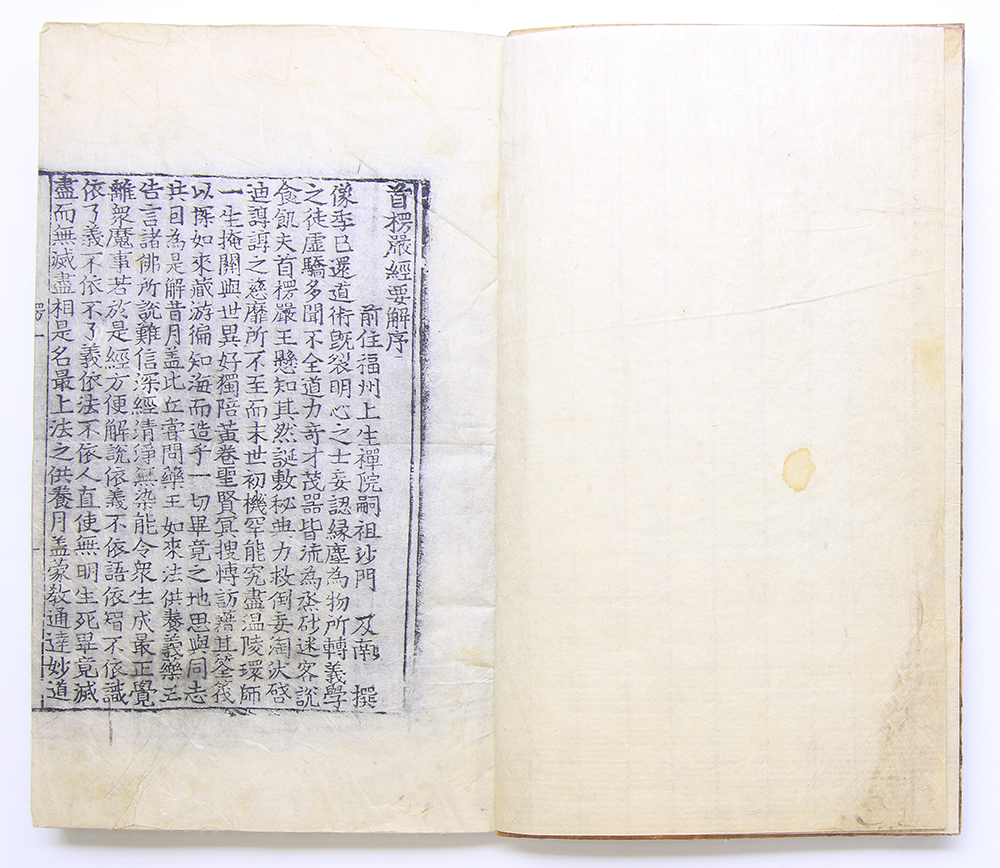 首楞嚴經要解序
前住福州上生禪院嗣祖沙門 及南 撰
像季已還道術旣裂明心之士妄認縁塵為物所轉義學
之徒虛驕多聞不全道力竒才茂器皆流為烝砂迷客說
食飢夫首楞嚴王懸知其然誕敷秘典力救倒妄淘汰啓
迪諄諄之慈靡所不至而末世初機罕能究盡温陵環師
一生掩關與世異好獨陪黃卷聖賢冥搜博訪藉其筌筏
以探如來藏游徧知海而造乎一切畢竟之地思與同志
共目為是解昔月盖比丘甞問藥王如來法供養義藥王
告言諸佛所說難信深經清淨無染能令衆生成最正覺
離衆魔事若於是經方便解說依義不依語依智不依識
依了義不依不了義依法不依人直使無明生死畢竟滅
盡而無滅盡相是名最上法之供養月盖蒙敎通達妙道
楞一
一